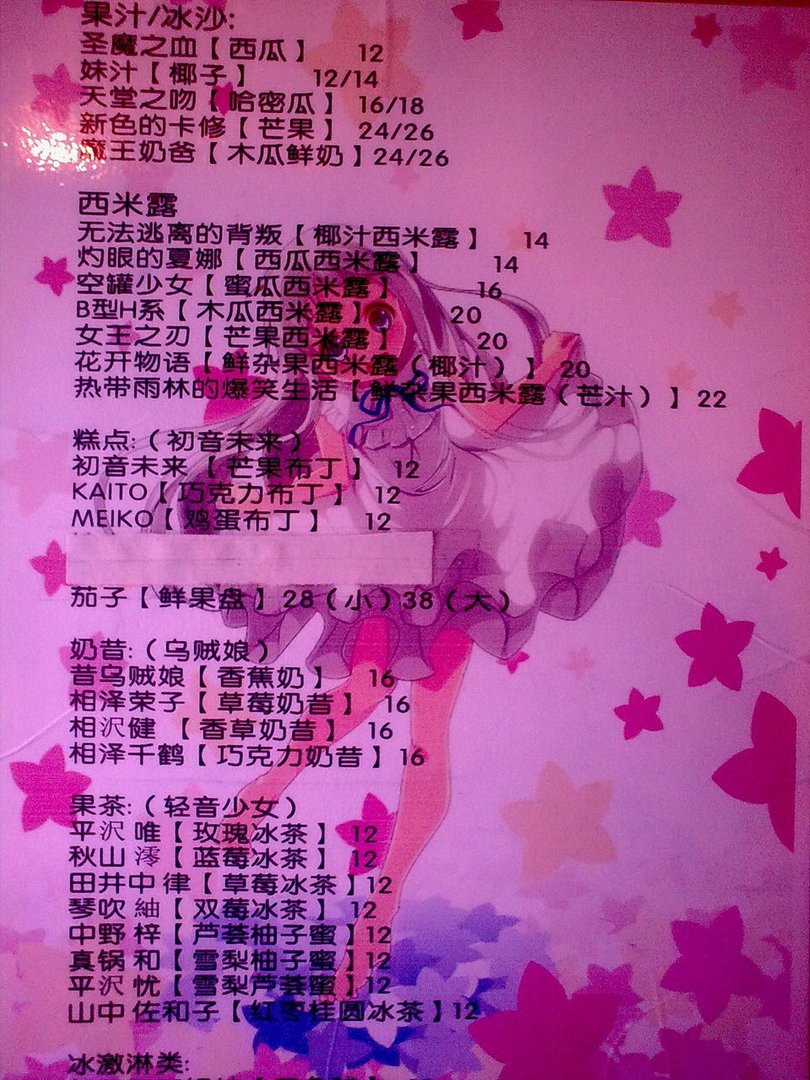 果汁/冰沙:
圣魔之血【西瓜】 12
妹汁【椰子】 12/14
天堂之吻【哈密瓜】 16/18
新色的卡修【芒果】 24/26
魔王奶爸【木瓜鲜奶】24/26
西米露
无法逃离的背叛【椰汁西米露】 14
灼眼的夏娜【西瓜西米露】 14
空罐少女【蜜瓜西米露】 16
B型H系【木瓜西米露】 20
女王之刃【芒果西米露】 20
花开物语【鲜杂果西米露（椰汁）】 20
热带雨林的爆笑生活【鲜杂果西米露（芒汁）】22
糕点:（初音未来）
初音未来【芒果布丁】 12
KAITO【巧克力布丁】 12
MEIKO【鸡蛋布丁】 12
茄子【鲜果盘】28（小）38（大）
奶昔:（乌贼娘）
昔乌贼娘【香蕉奶】 16
相泽荣子【草莓奶昔】 16
相沢健 【香草奶昔】 16
相泽千鹤【巧克力奶昔】16
果茶:（轻音少女）
平沢 唯【玫瑰冰茶】 12
秋山 澪【蓝莓冰茶】 12
田井中 律【草莓冰茶】12
琴吹 紬【双莓冰茶】 12
中野 梓【芦荟柚子蜜】12
真锅 和【雪梨柚子蜜】12
平沢 忧【雪梨芦荟蜜】12
山中 佐和子【红枣桂圆冰茶】12
冰激淋类: